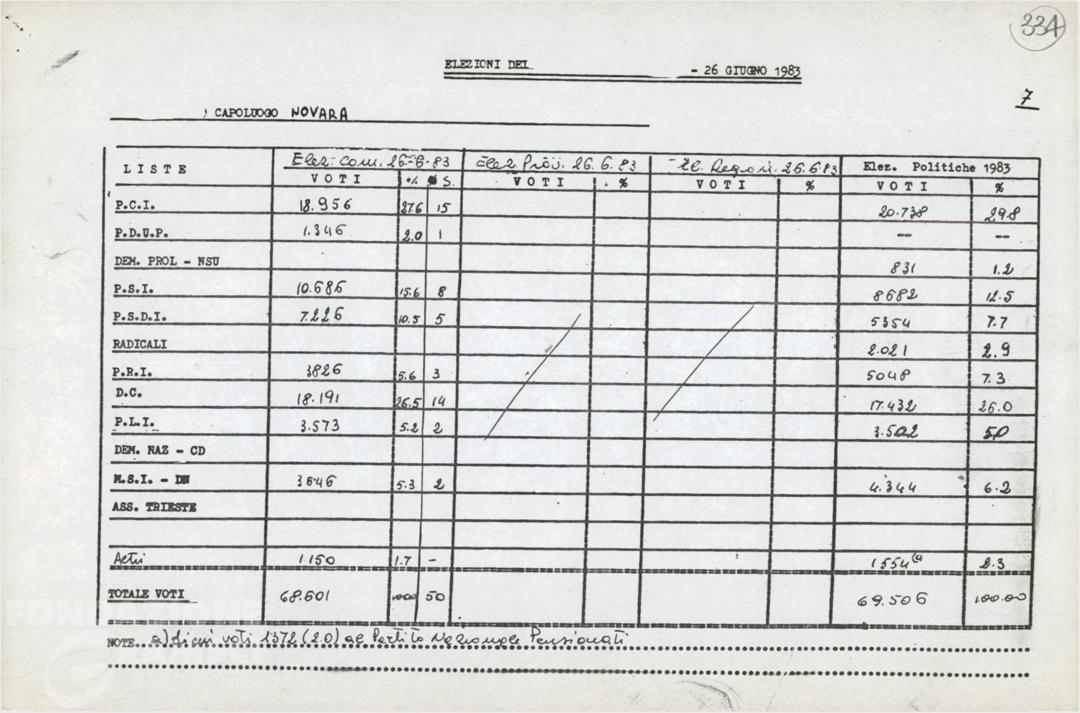 334
ELEZIONI DEL - 26 GIUGNO 1983
7
) CAPOLUOGO NOVARA
LISTE Elez. com. 26-6-83 Elez Prov. 26.6.83 El. Region. 26.6.83 Elez. Politiche 1983
VOTI % S. VOTI % VOTI % VOTI %
P.C.I. 18.956 27.6 15 20.738 29.8
P.D.U.P. 1.346 2.0 1 -- --
DEM. PROL - NSU 831 1.2
P.S.I. 10.686 15.6 8 8682 12.5
P.S.D.I. 7.226 10.5 5 5354 7.7
RADICALI 2.021 2.9
P.R.I. 3826 5.6 3 5048 7.3
D.C. 18.191 26.5 14 17.432 25.0
P.L.I. 3.573 5.2 2 3.502 5.0
DEM. NAZ - CD
M.S.I. - DN 3646 5.3 2 4.344 6.2
ASS. TRIESTE
Altri 1.150 1.7 - 1554 (a 2.3
TOTALE VOTI 68.601 100.0 50 69.506 100.00
NOTE. a) di cui voti 1372 (2.0) al Partito Nazionale Pensionati